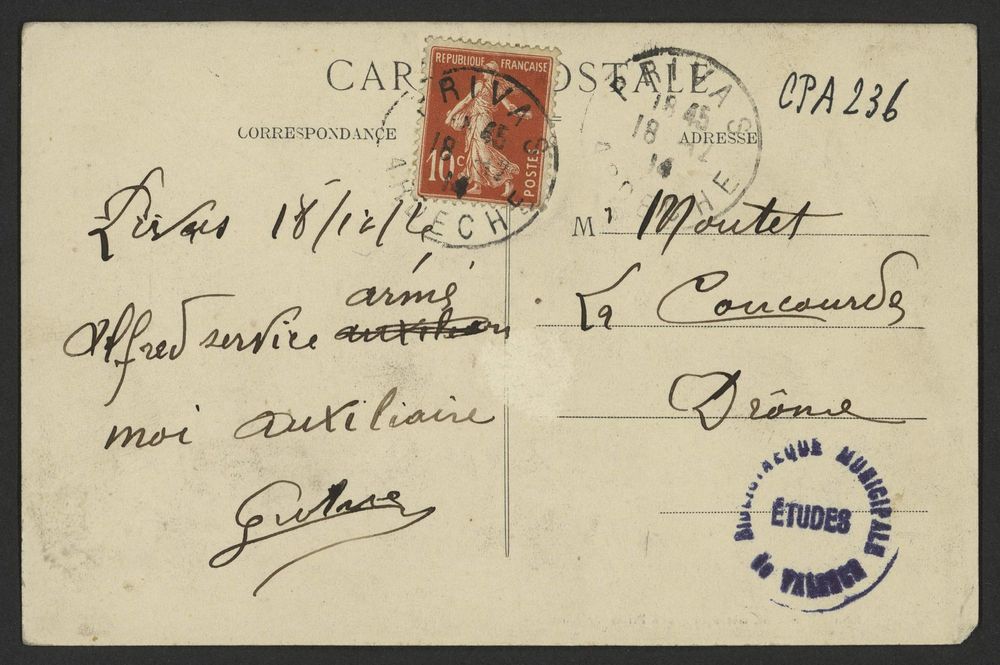 CARTE POSTALE
CPA 236
CORRESPONDANCE
ADRESSE
REPUBLIQUE FRANÇAISE
10c
POSTES
PRIVAS
18 45
18 12
14
ARDECHE
PRIVAS
18 45
18 12
14
ARDECHE
Privas 18/12/14
armé
Alfred service auxiliaire
moi auxiliaire
Mr Moutet
La Coucourde
Drôme
BIBLIOTHEQUE MUNICIPALE
ÉTUDES
de VALENCE